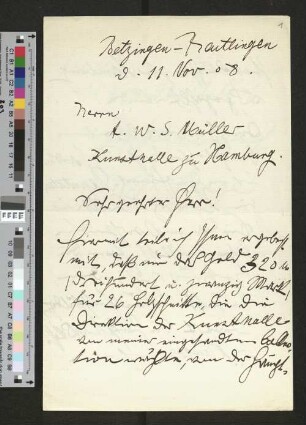 1.
Betzingen-Reutlingen
d. 11. Nov. 08.
Herrn
W. S. Müller
Kunsthalle zu Hamburg.
Sehr geehrter Herr!
Hiermit teile ich Ihnen ergebenst
mit, daß mir das Geld 320 M
(dreihundert u. zwanzig Mark)
für 26 Holzschnitte, die die
Direktion der Kunsthalle
von meiner eingesandten Collec-
tion wählte, von der